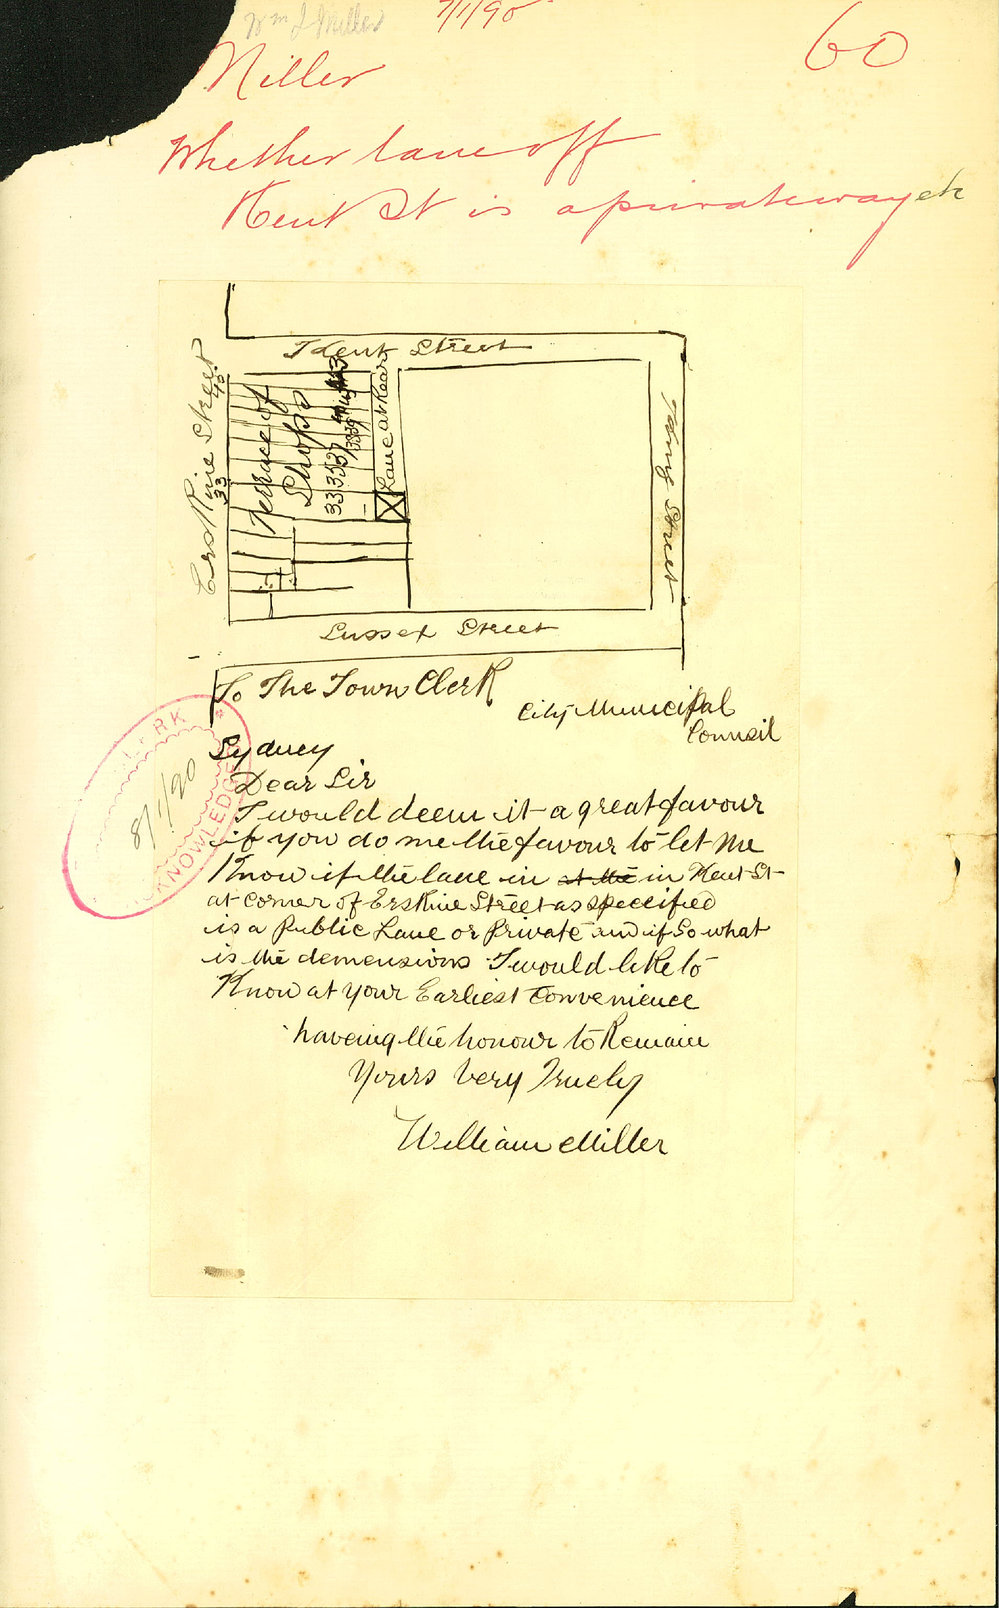 Wm J Miller
7/1/90
60
Miller
Whether lane off
Kent St is a private way etc
Kent Street
Erskine Street
45
33
Terrace of
Shops
33 35 37
Lane at Rear
King Street
Sussex Street
To The Town Clerk
City Municipal
Council
Sydney
CLERK
8/1/90
KNOWLEDGE
Dear Sir
I would deem it a great favour
if you do me the favour to let me
Know if the lane in at the in Kent St
at corner of Erskine Street as specified
is a Public Lane or Private and if So what
is the demensions I would like to
Know at your Earliest Convenience
haveing the honour to Remain
Yours Very Truely
William Miller